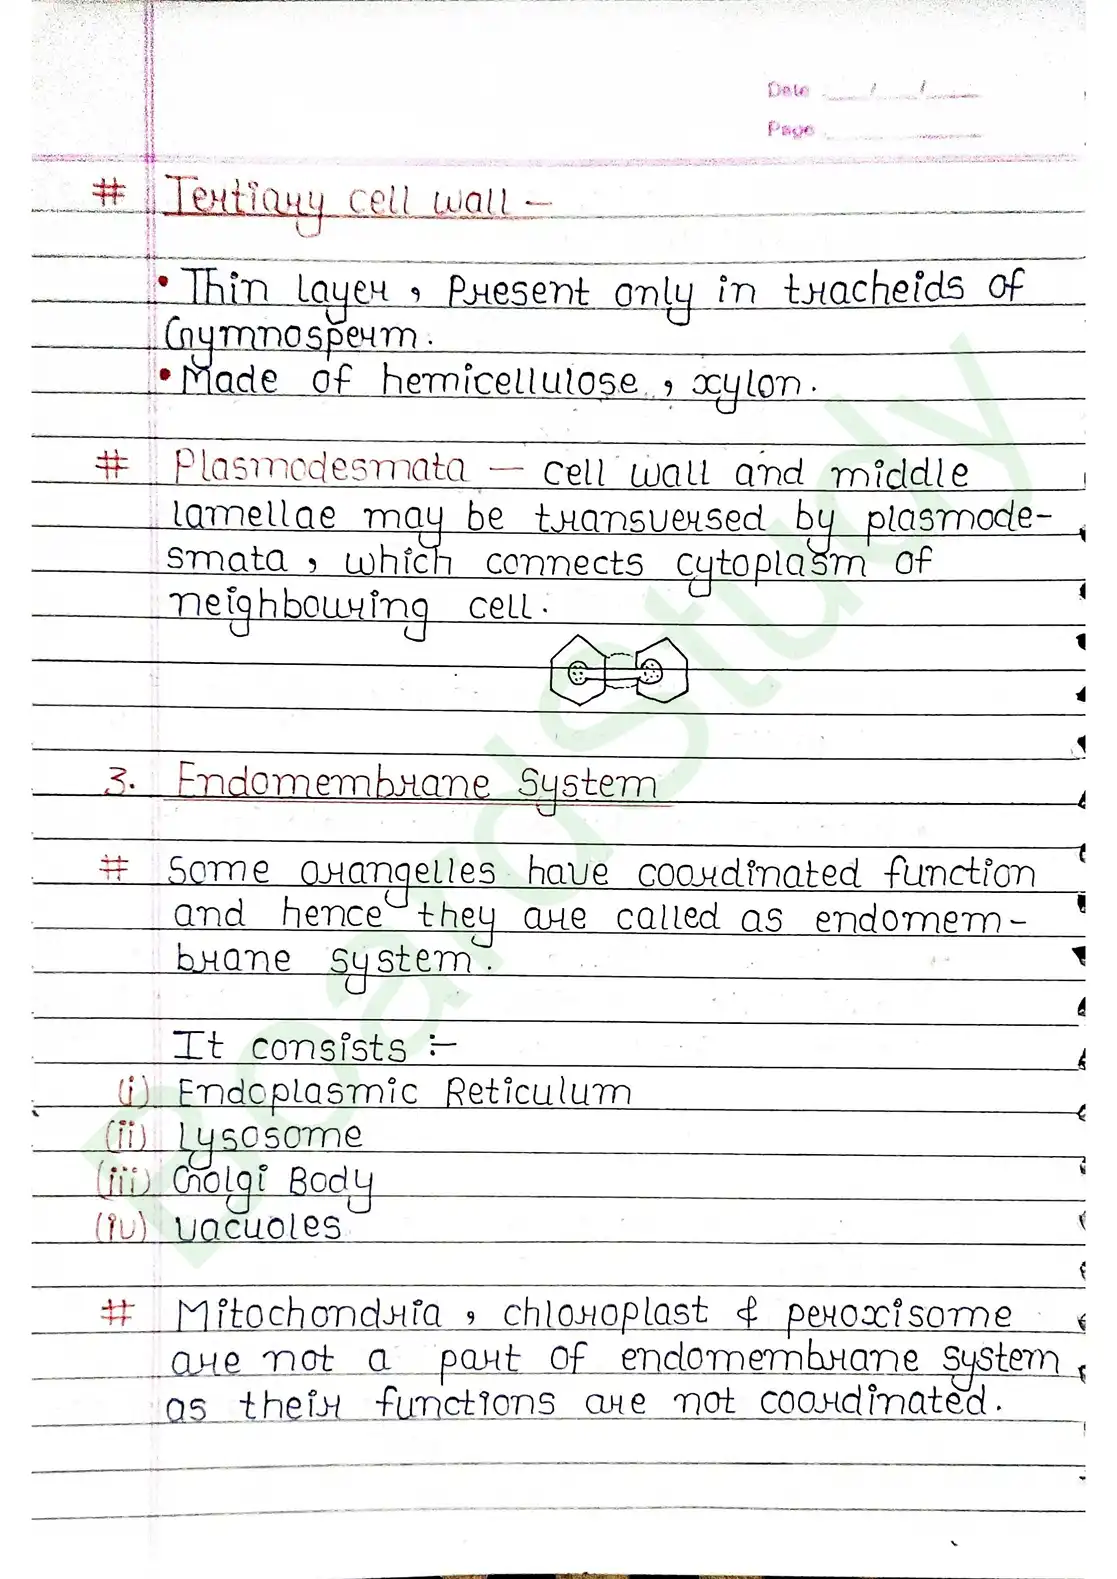 Date ___/___/___
Page ___________
# Tertiary cell wall -
• Thin layer, Present only in tracheids of
Gymnosperm.
• Made of hemicellulose, xylon.
# Plasmodesmata - cell wall and middle
lamellae may be transversed by plasmode-
smata, which connects cytoplasm of
neighbouring cell.
3. Endomembrane System
# Some orangelles have coordinated function
and hence they are called as endomem-
brane system.
It consists :-
(i) Endoplasmic Reticulum
(ii) Lysosome
(iii) Golgi Body
(iv) vacuoles
# Mitochondria, chloroplast & peroxisome
are not a part of endomembrane system
as their functions are not coordinated.
BoardStudy